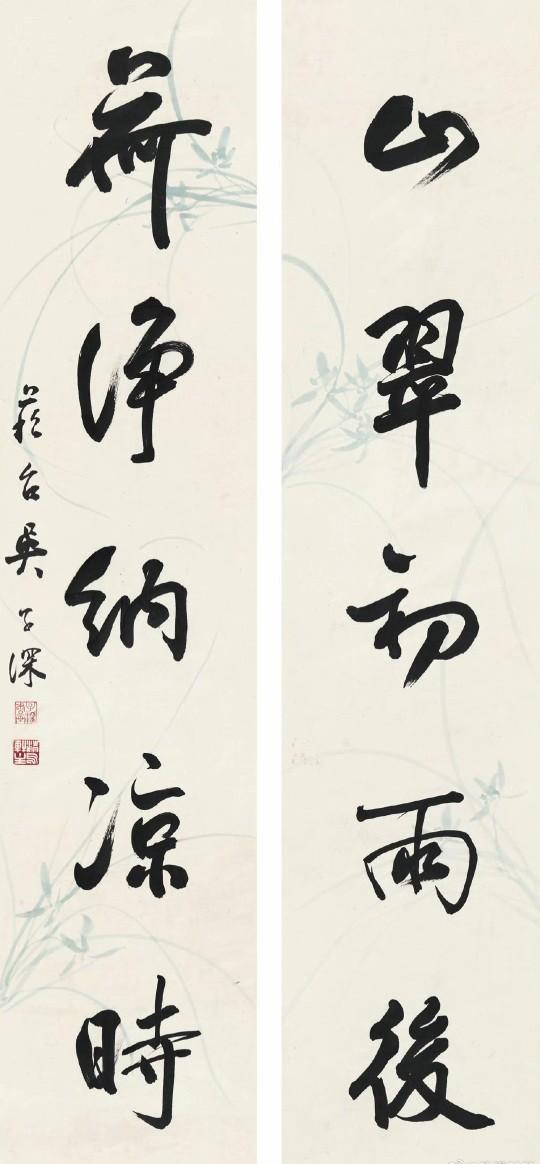 山翠初雨後
荷淨納凉時
菘台吳子深